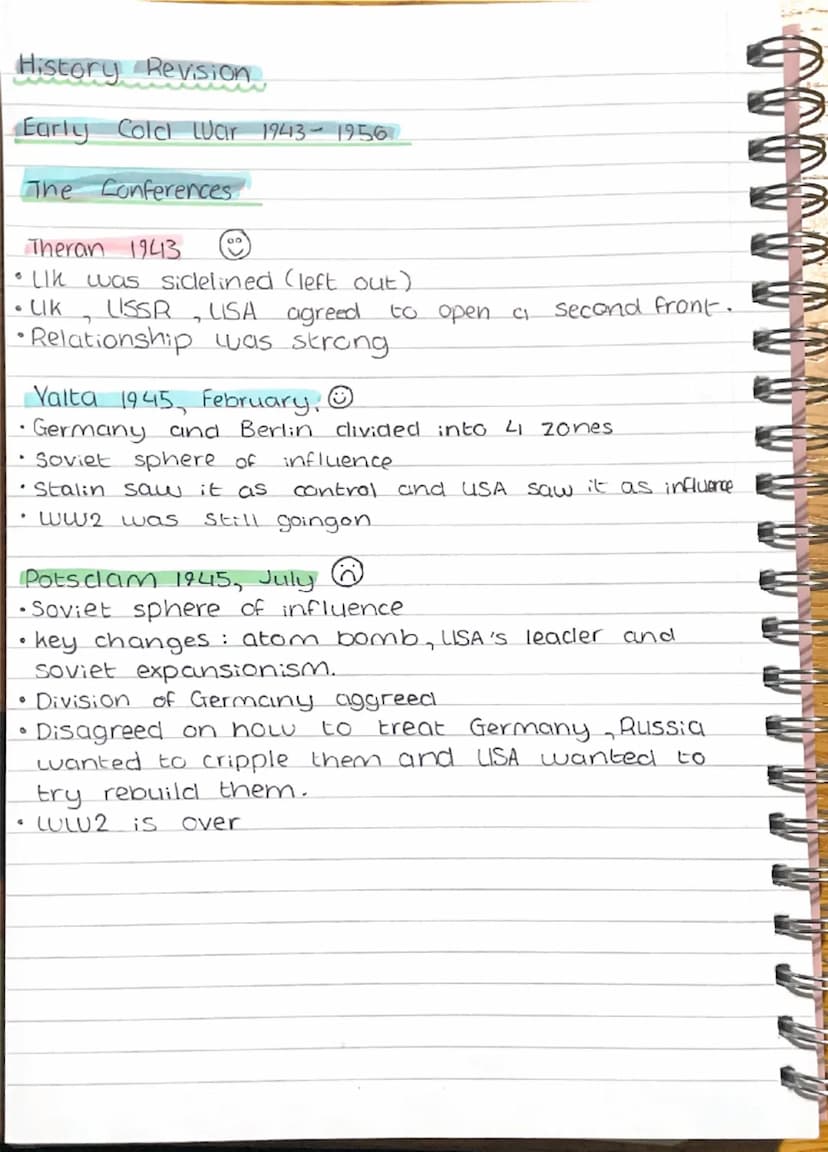 History Revision
Early Cold War 1943- 1956
The Conferences
Theran 1943
• UK was sidelined (left out)
• UK, USSR, USA agreed to open a second front.
• Relationship was strong
Yalta 1945, February.
• Germany and Berlin divided into 4 zones
• Soviet sphere of influence
• Stalin saw it as control and USA saw it as influence
• WW2 was still goingon
Potsdam 1945, July
• Soviet sphere of influence
• key changes : atom bomb, USA's leader and
soviet expansionism.
• Division of Germany aggreed
• Disagreed on how to treat Germany, Russia
wanted to cripple them and USA wanted to
try rebuild them.
• WW2 is over